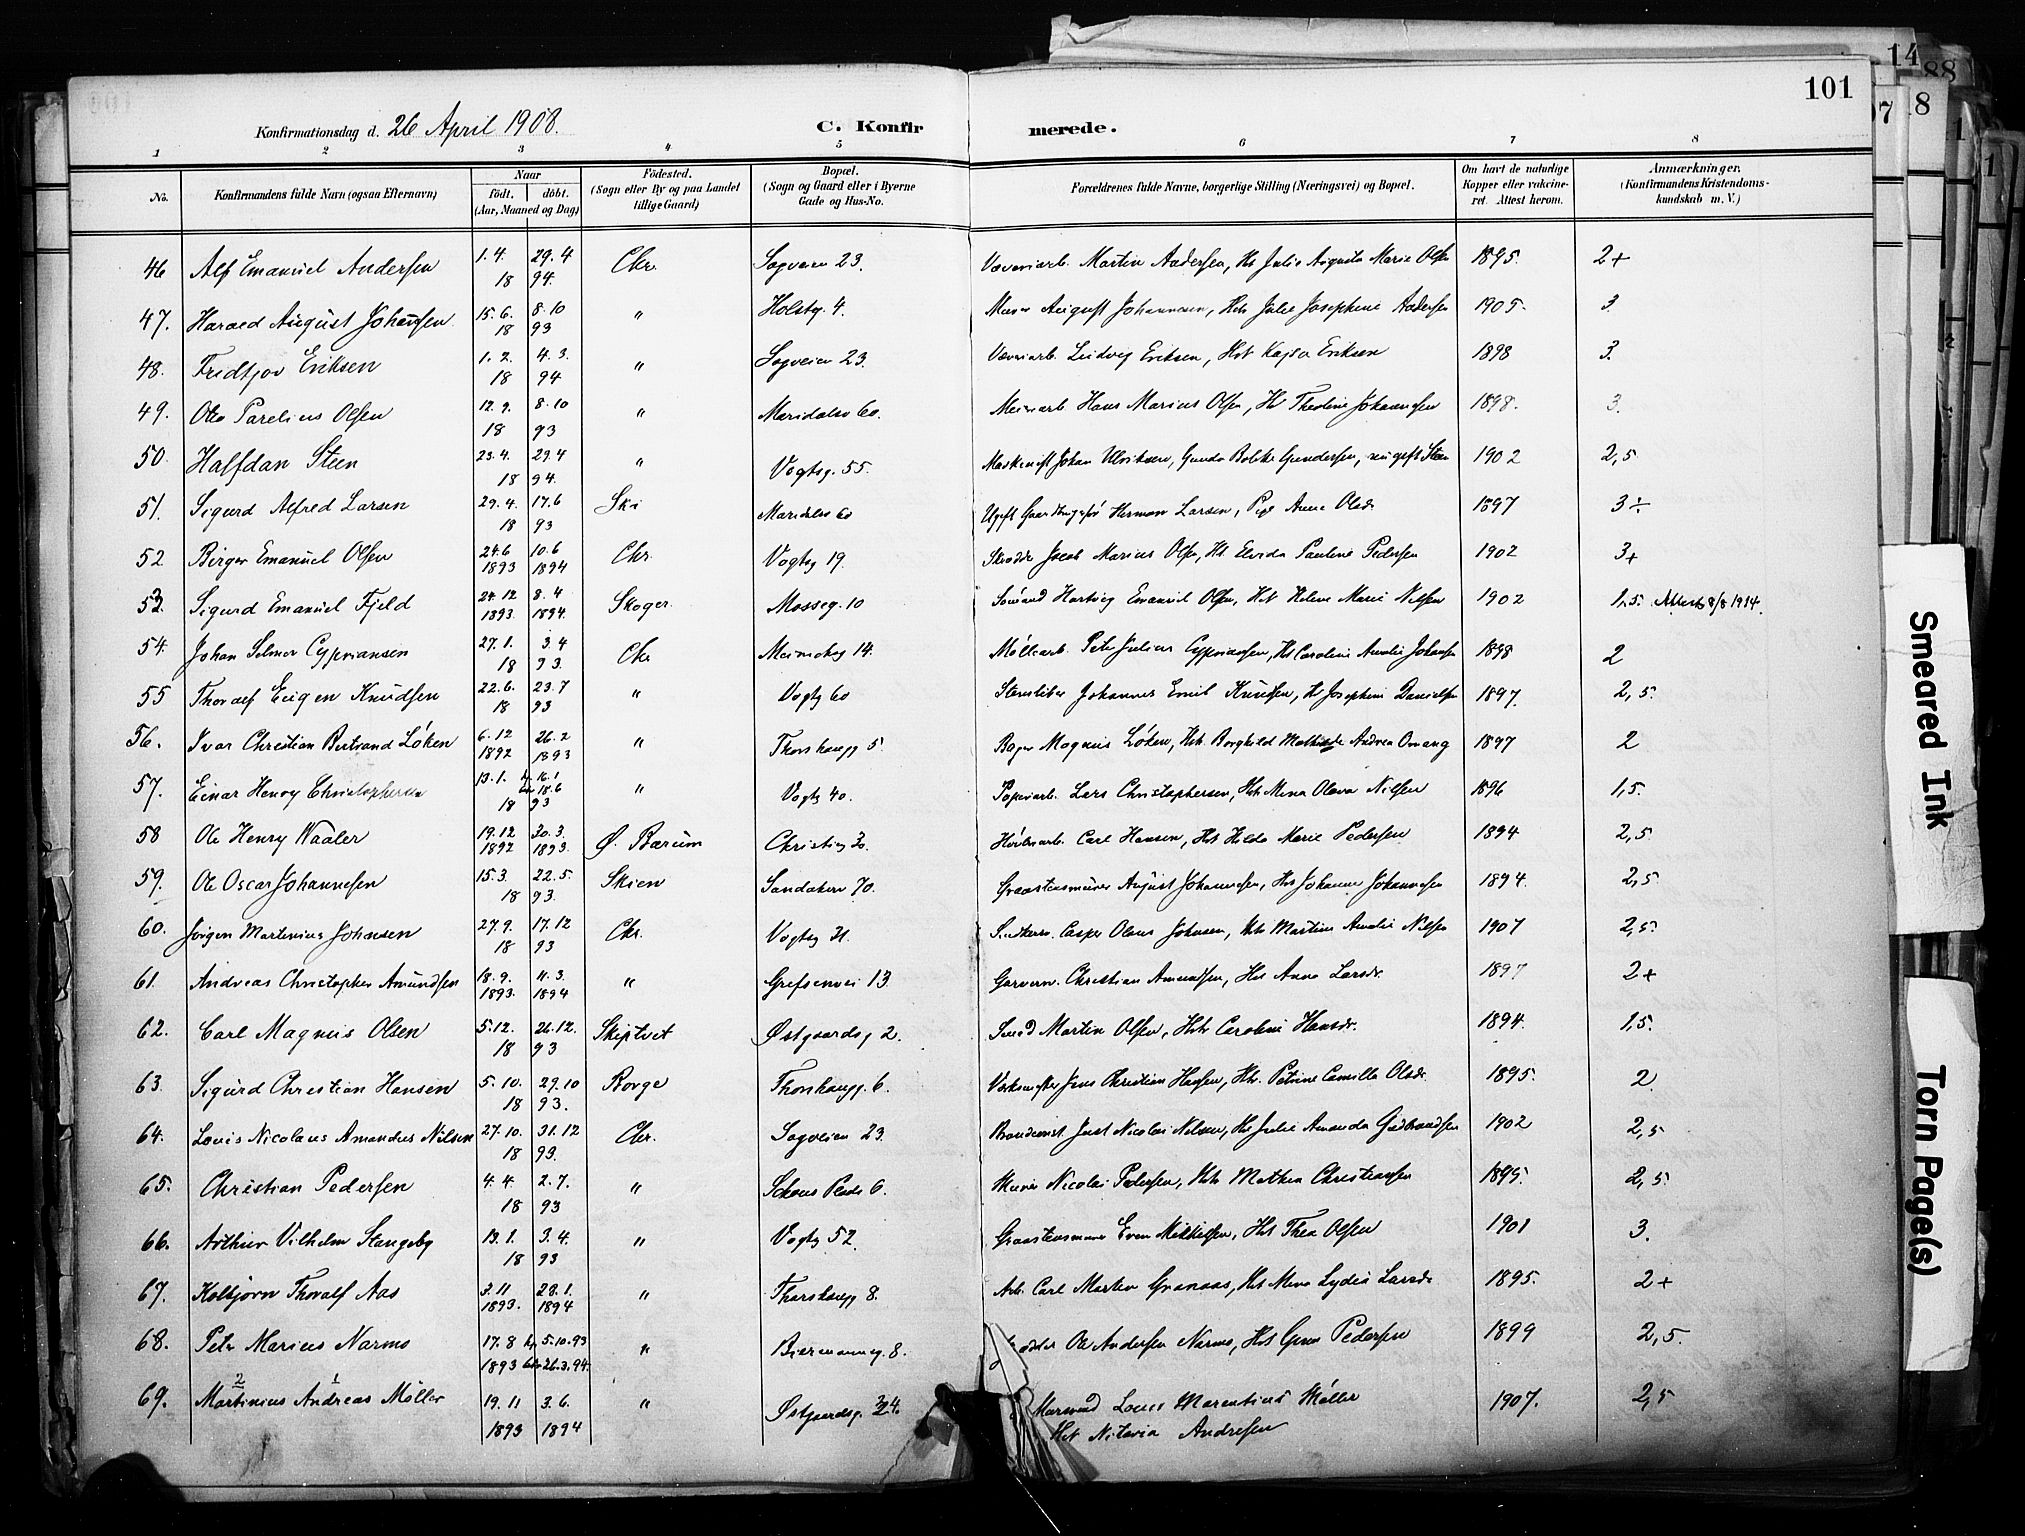 101
Konfirmationsdag d. 26 April 1908. C. Konfirmerede.
1 2 3 4 5 6 7 8
No. Konfirmandens fulde Navn (ogsaa Efternavn) Naar født, døbt. (Aar, Maaned og Dag) Fødested. (Sogn eller By og paa Landet tillige Gaard) Bopæl. (Sogn og Gaard eller i Byerne Gade og Hus-No. Forældrenes fulde Navne, borgerlige Stilling (Næringsvei) og Bopæl. Om havt de naturlige Kopper eller vakcineret. Attest herom. Anmærkninger. (Konfirmandens Kristendomskundskab m. V.)
46 Alf Emanuel Andersen 1.4. 29.4 18 94. Chr. Sagveien 23. Væveriarb. Martin Andersen, Hst Julie Augusta Marie Olsen 1895. 2+
47. Harald August Johansen 15.6. 8.10 18 93 " Holstg. 4. Murer August Johannesen, Hst Julie Josephine Andersen 1905. 3
48. Fridtjov Eriksen 1.2. 4.3. 18 94 " Sagveien 23. Væveriarb. Ludvig Eriksen, Hst Kajsa Eriksen 1898 3.
49. Otto Parelius Olsen 12.9. 8.10 18 93 " Maridalsv 60. Hans Marius Olsen, Hst Theoline Johannesen 1898. 3.
50. Halfdan Steen 23.4. 29.4 18 94. " Vogtsg. 55. Maskinist Johan Ulriksen, Gunda Bolette Gundersen, nu gift Steen 1902 2,5
51. Sigurd Alfred Larsen 29.4. 17.6 18 93 Ski Maridalsv 60 Ugift Herman Larsen, Pige Anne Olsdr 1897 3÷
52 Birger Emanuel Olsen 24.6 10.6 1893 1894 Chr. Vogtsg 19. Skrædder Jacob Marius Olsen, Hst Elvida Pauline Pedersen 1902 3+
53. Sigurd Emanuel Fjeld 24.12 8.4 1893. 1894. Skoger Mosseg. 10 Sømand Hartvig Emanuel Olsen, Hst Helene Marie Nilsen 1902 1,5. Attest 8/8 1914.
54. Johan Selmer Cyprianssen 27.1. 3.4 18 93. Chr. 14. Møllearb. Peter Julius Cypriansen, Hst Caroline Amalie Johansen 1898 2
55 Thoralf Eugen Knudsen 22.6. 23.7 18 93 " Vogtsg 60 Stensliber Johannes Emil Knudsen, Hst Josephine Danielsen 1897. 2,5.
56. Ivar Christian Bertrand Løken 6.12 26.2 1892 1893 " Thorshaugg 5. Bager Magnus Løken, Hst Borghild Mathilde Andrea Omang 1897 2
57. Einar Henry Christophersen 13.1. 16.1 18.6 18 93 " Vogtsg 40. Papirarb. Lars Christophersen, Hst Mina Olava Nilsen 1896 1,5.
58 Ole Henry Waaler 19.12 30.3. 1892 1893. Ø. Bærum Christiesg 30. Carl Hansen, Hst Hilda Marie Pedersen 1894 2,5
59. Ole Oscar Johannesen 15.3. 22.5. 18 93. Skien Sandakerv 70. Graastensmurer August Johannesen, Hst Johanne Johannesen 1894. 2,5.
60. Jørgen Martinius Johansen 27.9. 17.12 18 93 Chr. Vogtsg 31. Snedkersv. Casper Olaus Johnsen, Hst Martine Amalie Nilsen 1907 2,5.
61. Andreas Christopher Amundsen 18.9. 11.3. 1893. 1894 " Grefsenvei 13. Garversv. Christian Amundsen, Hst Anna Larsdr. 1897 2+
62. Carl Magnus Olsen 5.12. 26.12. 18 93 Skiptvet Østgaardsg 2. Smed Martin Olsen, Hst Caroline Hansdr. 1894. 1,5.
63. Sigurd Christian Hansen 5.10. 29.10 18 93. Borge Thorshaugg. 6. Værksmester Jens Christian Hansen, Hst. Petrine Camilla Olsdr. 1895. 2.
64. Louis Nicolaus Amandus Nilsen 27.10. 31.12 18 93. Chr. Sagveien 23. Brandconst. Just Nicolai Nilsen, Hst Julie Amanda Gudbrandsen 1902 2,5
65. Christian Pedersen 4.4. 2.7. 18 93 " Schous Plads 6. Murer Nicolai Pedersen, Hst Mathea Christiansen 1895. 2,5.
66. Arthur Vilhelm Stangeby 13.1. 3.4. 18 93 " Vogtsg 52. Graastensmurer Even Mikkelsen, Hst Thea Olsen 1901 3.
67. Kolbjørn Thoralf Aas 3.11 28.1. 1893. 1894 " Thorshaugg 8. Arb. Carl Martin Granaas, Hst Mina Lydia Larsdr 1895. 2+
68. Peter Marius Narmo 17.8 5.10.93 1893 26.3.94. " Biermannsg. 8. Ole Andersen Narmo, Hst Guno Pedersen 1899 2,5
69. Martinius Andreas Møller 19.11 3.6. 1893 1894 " Østgaardsg. 24. Louis Marentius Møller Hst Nitavia Andresen 1907. 2,5
Smeared Ink
Torn Page(s)